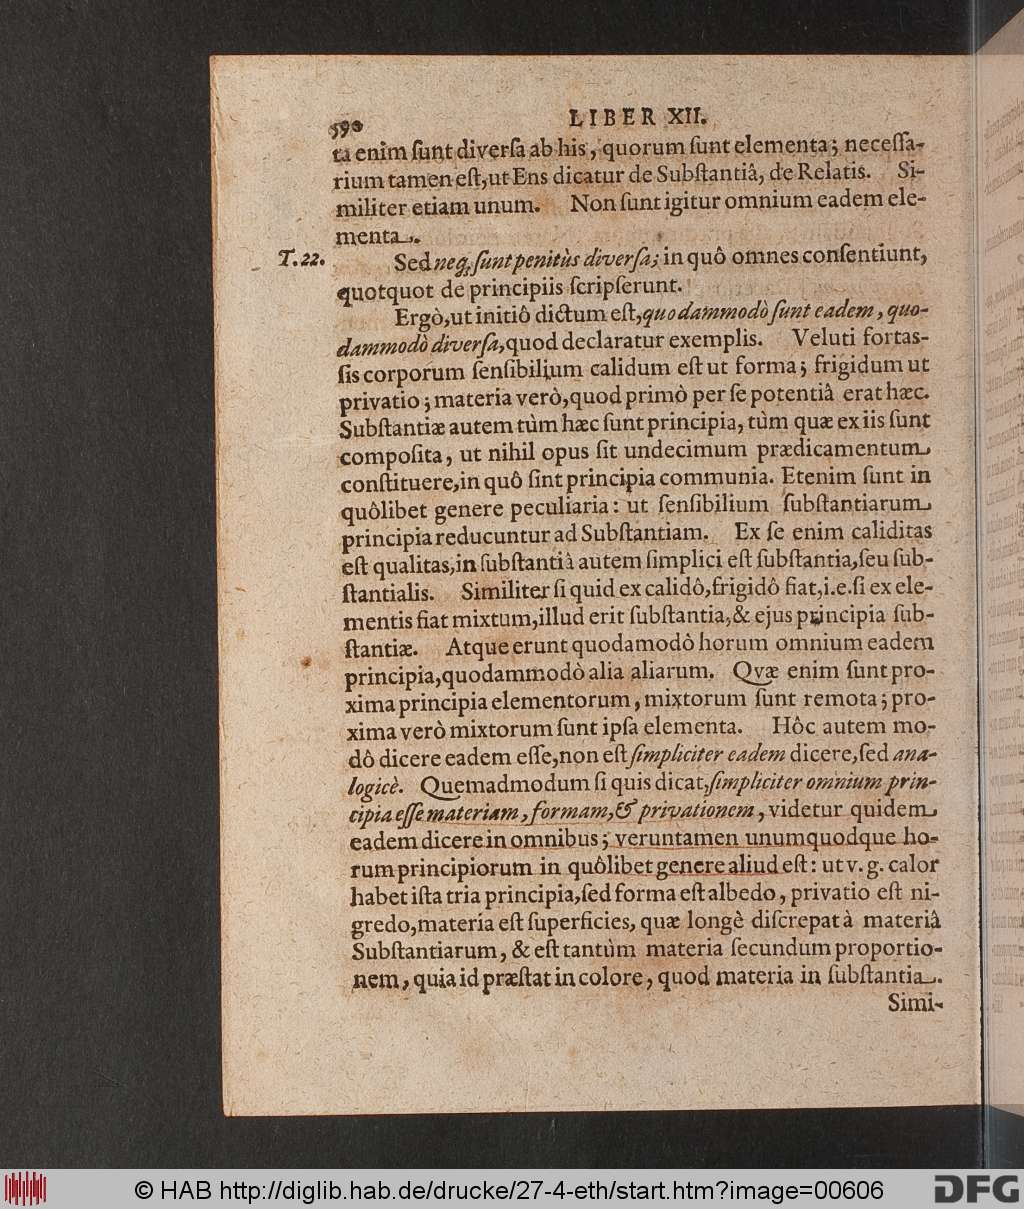 590 LIBER XII.
ta enim ſunt diverſa ab his, quorum ſunt elementa; neceſſa-
rium tamen eſt, ut Ens dicatur de Subſtantiâ, de Relatis. Si-
militer etiam unum. Non ſunt igitur omnium eadem ele-
menta.
T. 22. Sed neq; ſunt penitùs diverſa; in quô omnes conſentiunt,
quotquot de principiis ſcripſerunt.
Ergò, ut initiô dictum eſt, quodammodò ſunt eadem, quo-
dammodò diverſa, quod declaratur exemplis. Veluti fortaſ-
ſis corporum ſenſibilium calidum eſt ut forma; frigidum ut
privatio; materia verò, quod primò per ſe potentiâ erat hæc.
Subſtantiæ autem tùm hæc ſunt principia, tùm quæ ex iis ſunt
compoſita, ut nihil opus ſit undecimum prædicamentum
conſtituere, in quô ſint principia communia. Etenim ſunt in
quôlibet genere peculiaria: ut ſenſibilium ſubſtantiarum
principia reducuntur ad Subſtantiam. Ex ſe enim caliditas
eſt qualitas, in ſubſtantiâ autem ſimplici eſt ſubſtantia, ſeu ſub-
ſtantialis. Similiter ſi quid ex calidô, frigidô fiat, i.e. ſi ex ele-
mentis fiat mixtum, illud erit ſubſtantia, & ejus principia ſub-
ſtantiæ. Atque erunt quodamodô horum omnium eadem
principia, quodammodò alia aliarum. Qvæ enim ſunt pro-
xima principia elementorum, mixtorum ſunt remota; pro-
xima verò mixtorum ſunt ipſa elementa. Hôc autem mo-
dô dicere eadem eſſe, non eſt ſimpliciter eadem dicere, ſed ana-
logicè. Quemadmodum ſi quis dicat, ſimpliciter omnium prin-
cipia eſſe materiam, formam, & privationem, videtur quidem
eadem dicere in omnibus; veruntamen unumquodque ho-
rum principiorum in quôlibet genere aliud eſt: ut v. g. calor
habet iſta tria principia, ſed forma eſt albedo, privatio eſt ni-
gredo, materia eſt ſuperficies, quæ longè diſcrepat à materiâ
Subſtantiarum, & eſt tantùm materia ſecundum proportio-
nem, quia id præſtat in colore, quod materia in ſubſtantia.
Simi-
© HAB http://diglib.hab.de/drucke/27-4-eth/start.htm?image=00606
DFG